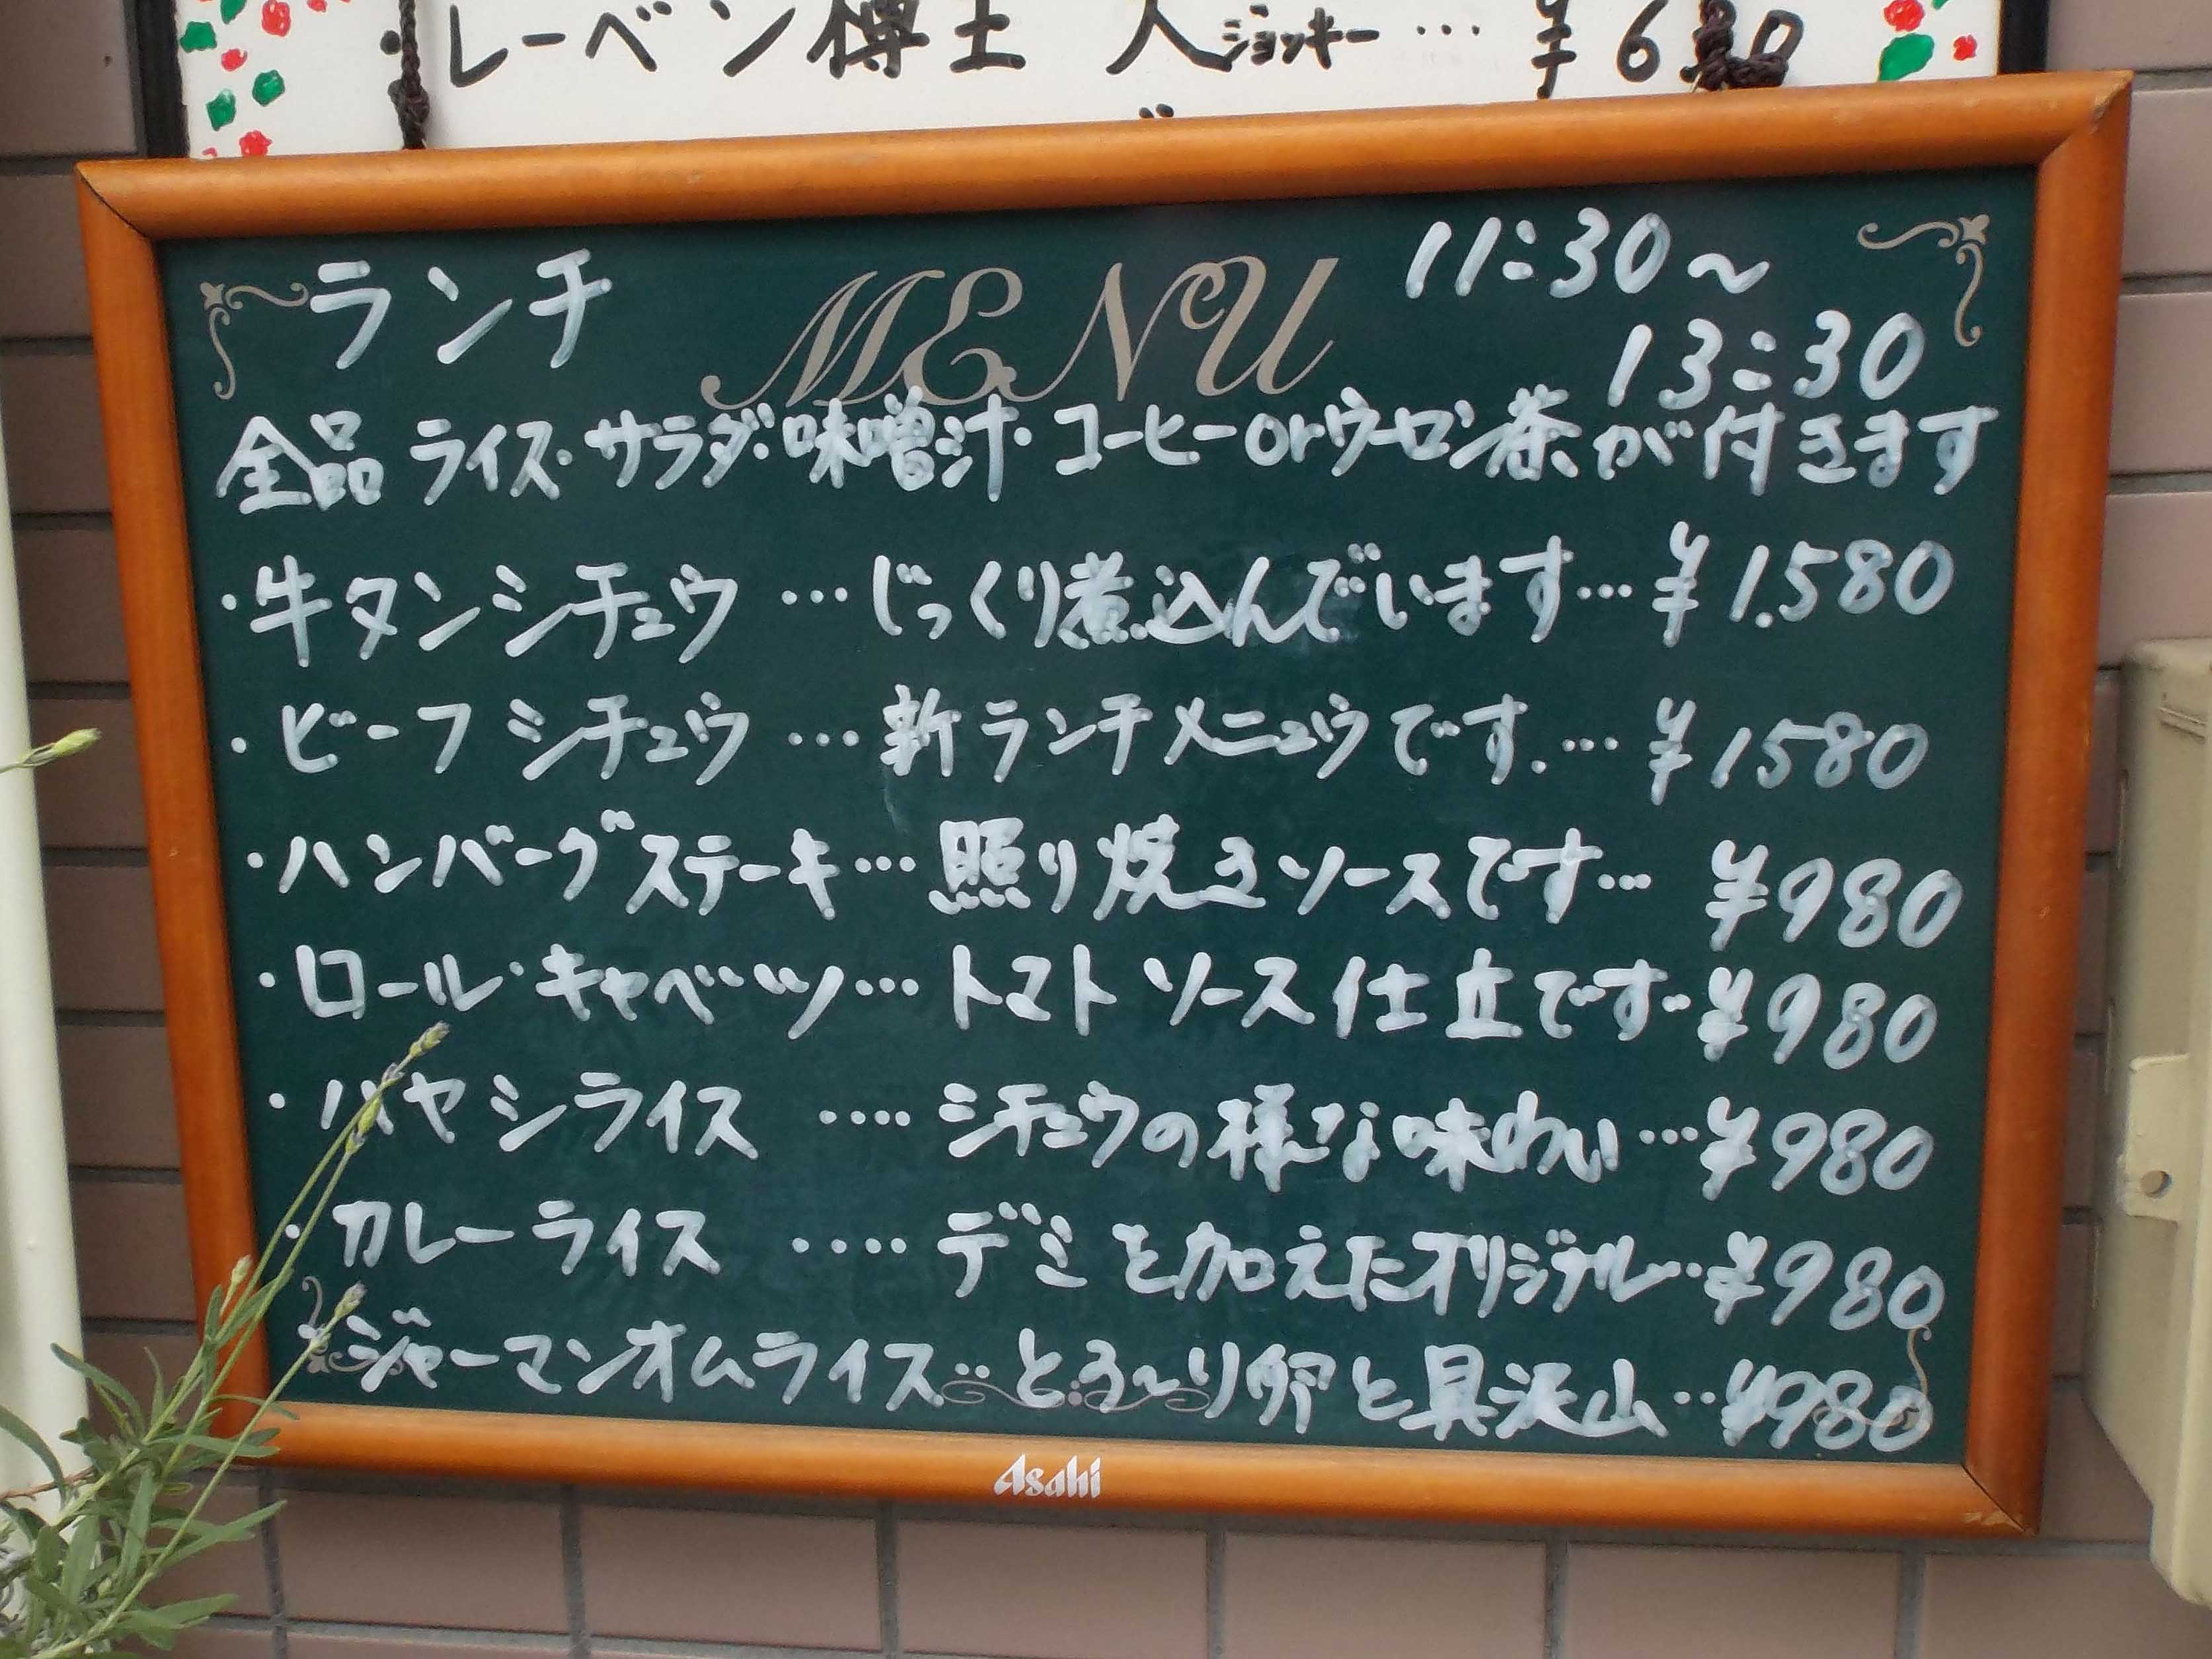 レーベン樽生 大ジョッキー … ¥6
ランチ MENU 11:30～
13:30
全品 ライス・サラダ・味噌汁・コーヒーorウーロン茶が付きます
・牛タンシチュウ …じっくり煮込んでいます…¥1.580
・ビーフシチュウ …新ランチメニュウです.…¥1580
・ハンバーグステーキ…照り焼きソースです…¥980
・ロール・キャベーツ…トマトソース仕立です‥¥980
・ハヤシライス ‥‥シチュウの様な味わい…¥980
・カレーライス ‥‥デミを加えたオリジナル‥¥980
・ジャーマンオムライス‥とろ～り卵と具沢山‥¥980
Asahi